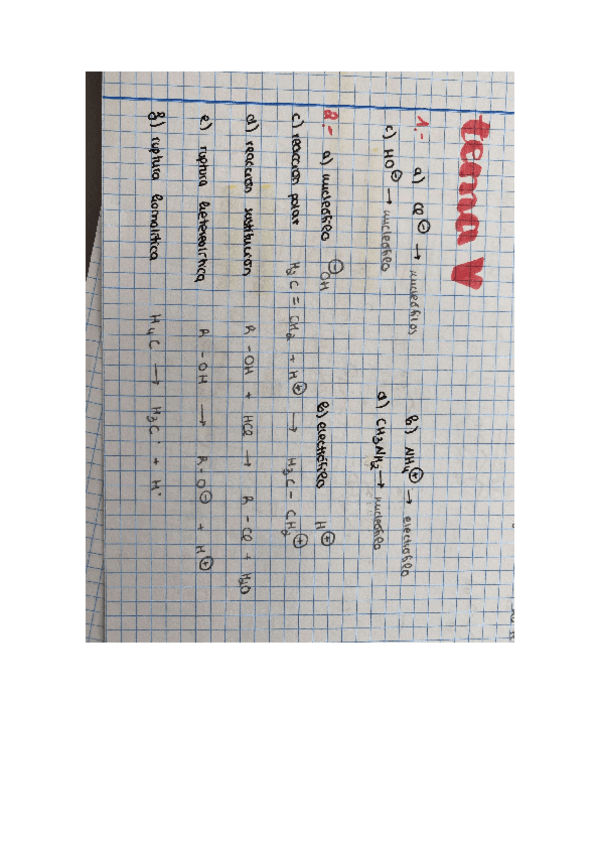 tema V
1.- a) Cl⊖ → nucleófilos b) NH4⊕ → electrofilo
c) HO⊖ → nucleófilo d) CH3NH2 → nucleofilo
2.- a) nucleófilo ⊖OH b) electrófilo H⊕
c) reacción polar H2C = CH2 + H⊕ → H3C - CH2⊕
d) reacción sustitución R - OH + HCl → R - Cl + H2O
e) ruptura heterolítica R - OH → R-O⊖ + H⊕
f) ruptura homolítica H4C → H3C· + H·